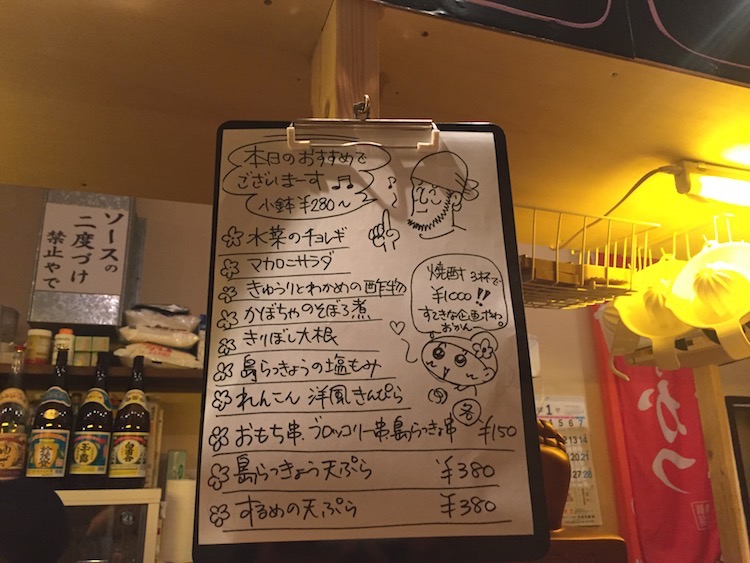 本日のおすすめで
ございまーす♫
小鉢¥280〜
水菜のチョレギ
マカロニサラダ
きゅうりとわかめの酢物
かぼちゃのそぼろ煮
きりぼし大根
島らっきょうの塩もみ
れんこん 洋風きんぴら
おもち串、ブロッコリー串島らっきょ串 各 ¥150
島らっきょう天ぷら ¥380
するめの天ぷら ¥380
焼酎 3杯で
¥1000!!
すてきな企画ポわ。
おかん
ソースの
二度づけ
禁止やで
かつ
1
5 6 7